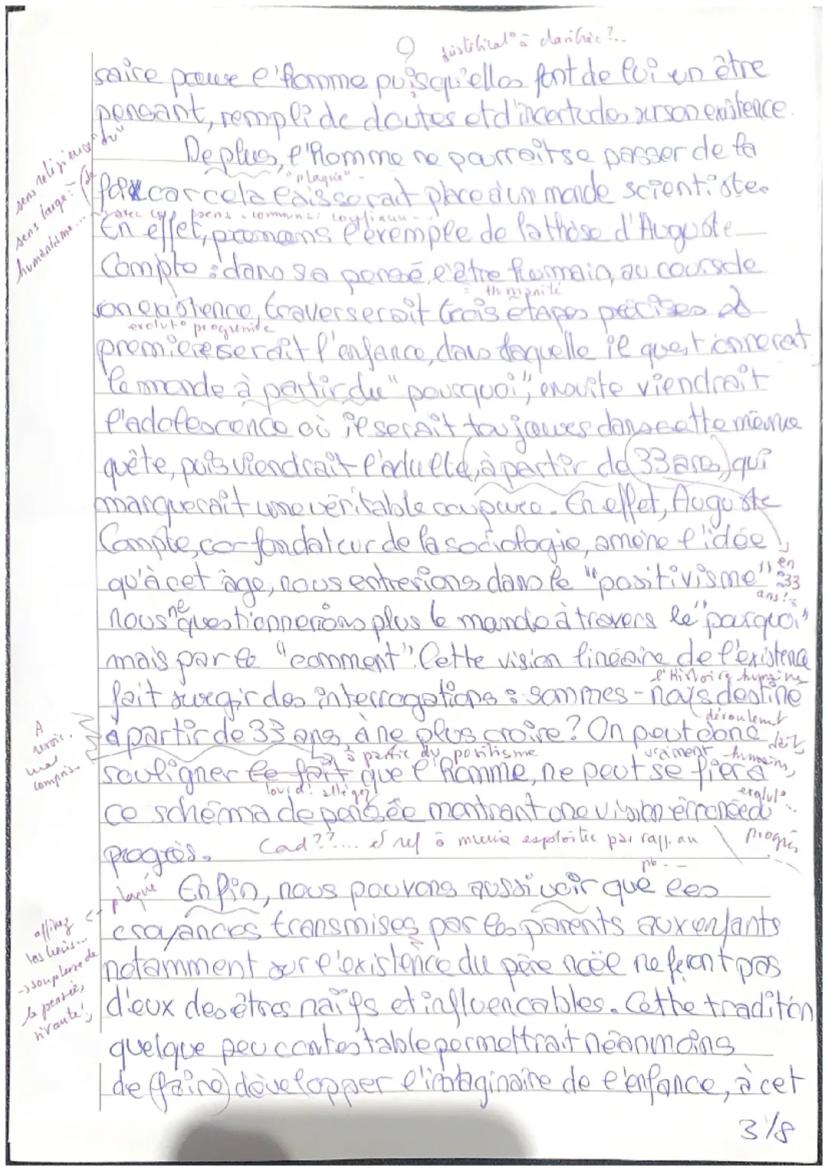 justificat° à clarifier ?...
saire pour l'homme puisqu'elles font de lui un être
pensant, rempli de doutes et d'incertudes sur son existence.
De plus, l'Homme ne pourrait se passer de la
sens religieux du
"plaqué"
foi car cela laisserait place à un monde scientiste.
sens large :
humanisme...
sens commun :
En effet, prenons l'exemple de la thèse d'Auguste
Compte : dans sa pensé, l'être humain, au cours de
: l'humanité
son existence, traverserait trois étapes précises
évolut° progressive
première serait l'enfance, dans laquelle il questionnerait
le monde à partir du "pourquoi", ensuite viendrait
l'adolescence où il serait toujours dans cette même
quête, puis viendrait l'adulte, à partir de 33 ans, qui
marquerait une véritable coupure. En effet, Auguste
Compte, co-fondateur de la sociologie, amène l'idée
qu'à cet âge, nous entrerions dans le "positivisme"
en 33 ans !
nous ne questionnerions plus le monde à travers le "pourquoi"
mais par le "comment". Cette vision linéaire de l'existence
l'Histoire humaine
fait surgir des interrogations : sommes-nous destiné
A revoir.
mal compris.
déroulement
à partir de 33 ans, à ne plus croire ? On peut donc
à partir du positisme
vraiment humains,
souligner le fait que l'Homme, ne peut se fier à
lourd : alléger
évolut°...
ce schéma de pensée montrant une vision érronée du
progrès.
Cad ??.... et réf à mieux exploiter par rapp. au
pb...
progrès
<- plaqué
Enfin, nous pouvons aussi voir que les
croyances transmises par les parents aux enfants
affinez
-> souplesse de la pensée,
notamment sur l'existence du père noël ne feront pas
d'eux des êtres naïfs et influençables. Cette traditon
quelque peu contestable permettrait néanmoins
de (faire) développer l'imaginaire de l'enfance, à cet
3/8